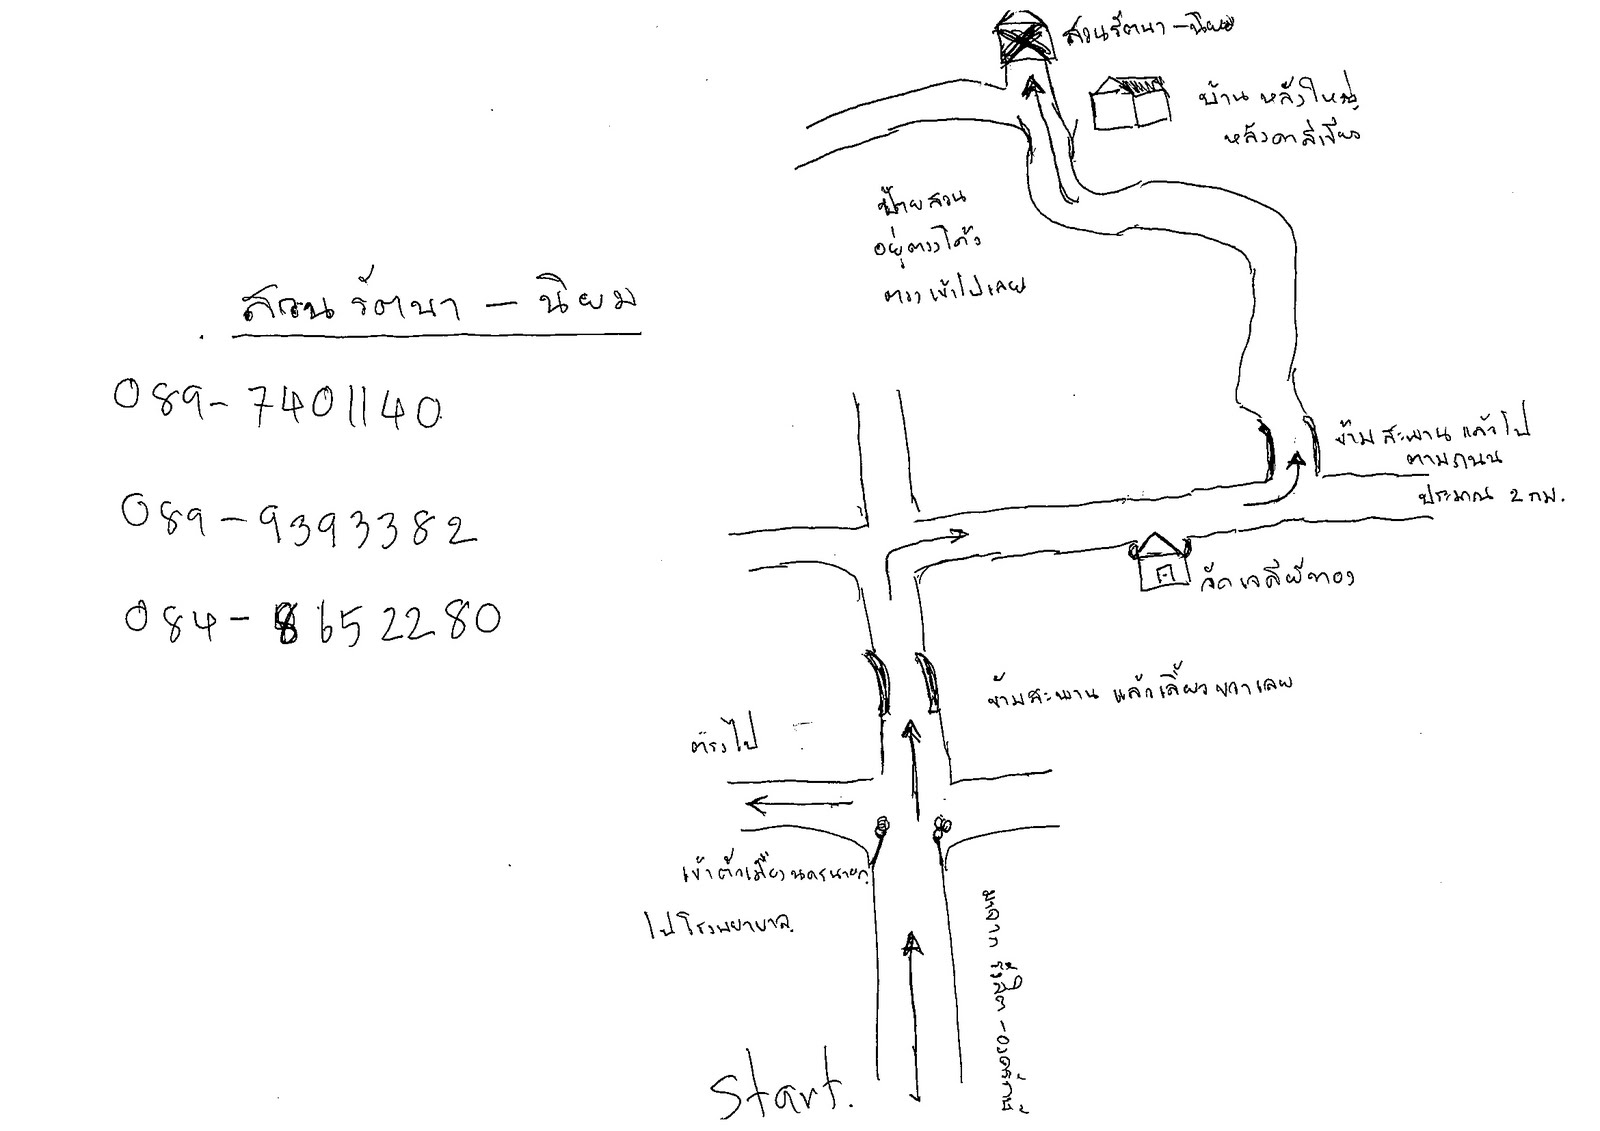 สวนรัตนา - นิยม
บ้าน หลังใหญ่
หลังคาสีเขียว
ป้ายสวน
อยู่ตรงโค้ง
ตรงเข้าไปเลย
สวน รัตนา - นิยม
089-7401140
089-9393382
084-8652280
ข้าม สะพาน แล้วไป
ตามถนน
ประมาณ 2 กม.
วัดเจดีย์ทอง
ข้ามสะพาน แล้วเลี้ยวขวาเลย
ตรงไป
เข้าตัวเมืองนครนายก
ไปโรงพยาบาล
มาจาก รังสิต - องครักษ์
Start.